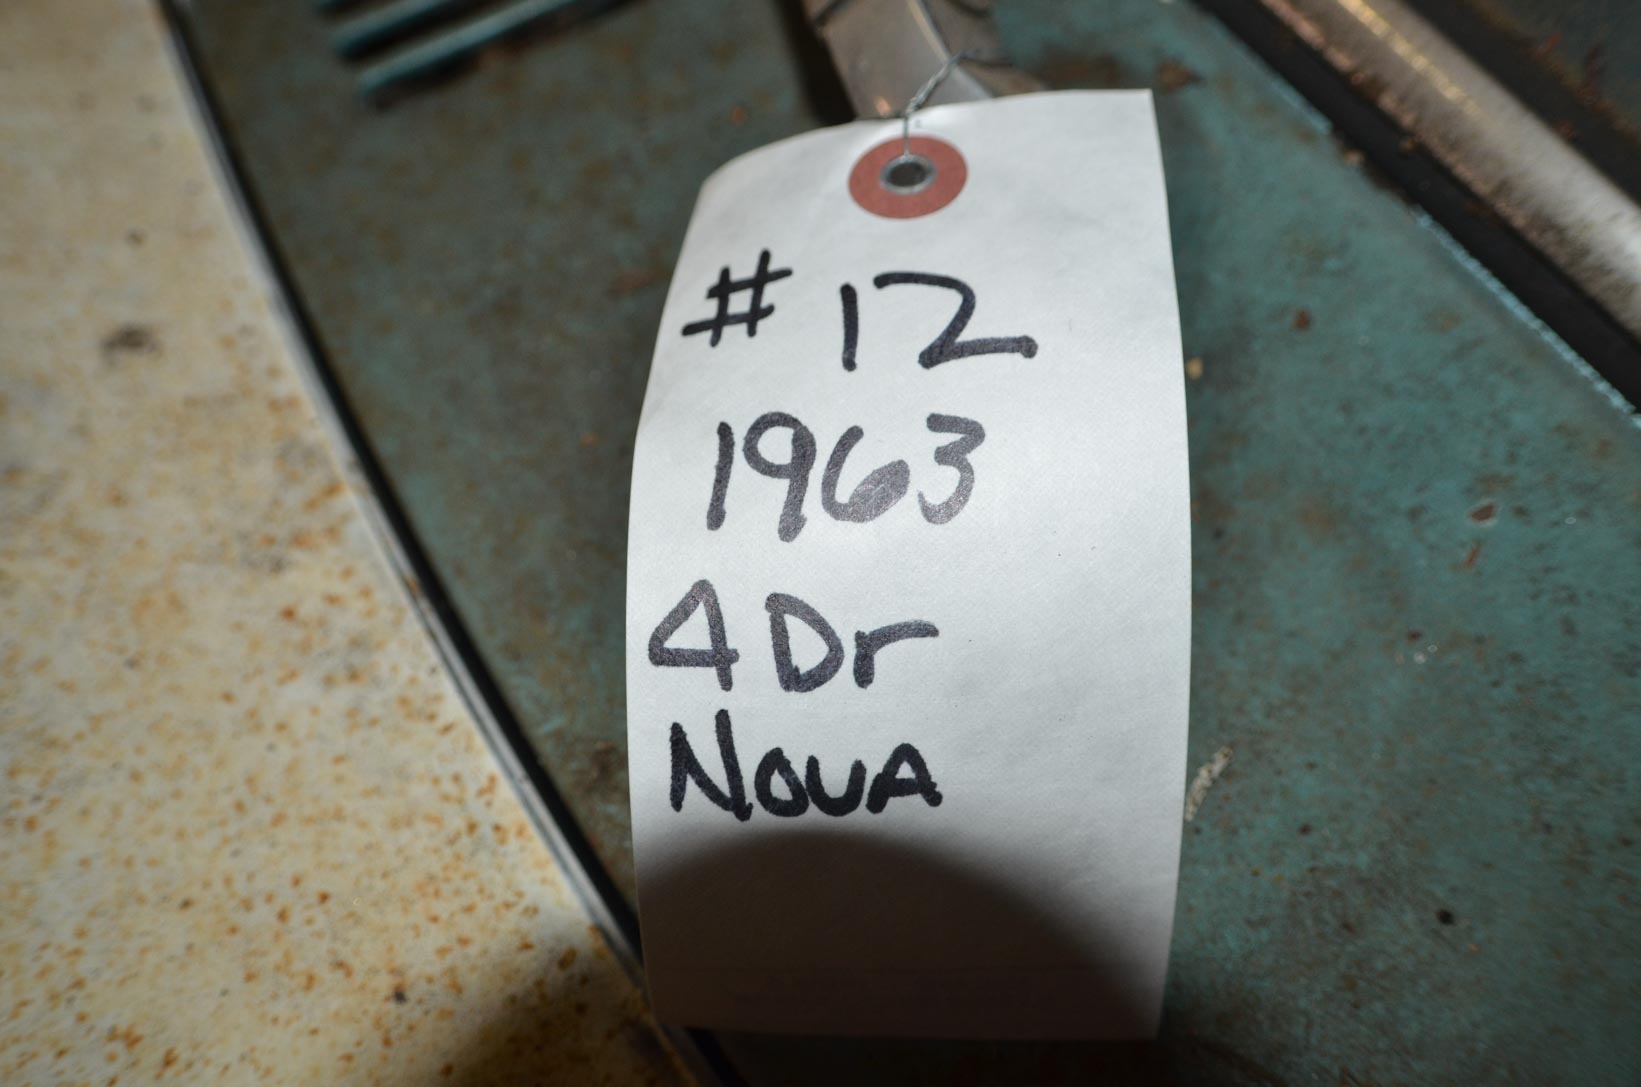 # 12
1963
4 Dr
Nova